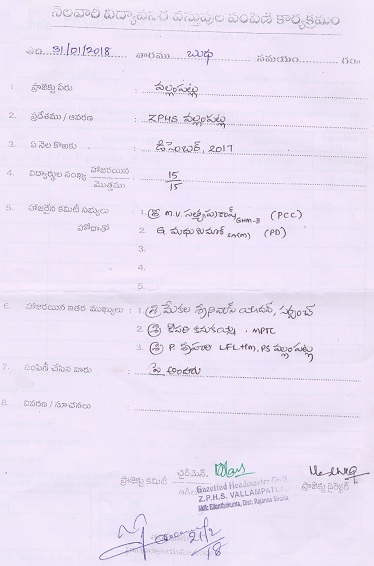 నెలవారి విద్యావసర వస్తువుల పంపిణి కార్యక్రమం
తేది 31/01/2018 వారము బుధ సమయం గం॥
1. ప్రాజెక్టు పేరు : వల్లంపట్ల
2. ప్రదేశము / ఆవరణ : ZPHS వల్లంపట్ల
3. ఏ నెల కొఱకు : డిసెంబర్, 2017
4. విద్యార్థుల సంఖ్య హాజరయిన / మొత్తము : 15/15
5. హాజరైన కమిటీ సభ్యులు : 1. శ్రీ M.V. సత్యప్రకాశ్ GHM-II (PCC)
హోదాతో 2. G. మధుకుమార్ SA(M) (PD)
3.
4.
5.
6. హాజరయిన ఇతర ముఖ్యులు : 1. శ్రీ మేకల శ్రీనివాస్ యాదవ్, సర్పంచ్
2. శ్రీ కనుకయ్య, MPTC
3. శ్రీ P. LFL Hm, PS వల్లంపట్ల
7. పంపిణీ చేసిన వారు : పై అందరు
8. వివరణ / సూచనలు :
ప్రాజెక్టు కమిటీ ఛైర్మెన్, ప్రాజెక్టు డైరెక్టర్
Gazetted Headmaster Gr-II
Z.P.H.S. VALLAMPATLA
Mdl: Ellanthakunta, Dist. Rajanna Sircilla
21/2/18